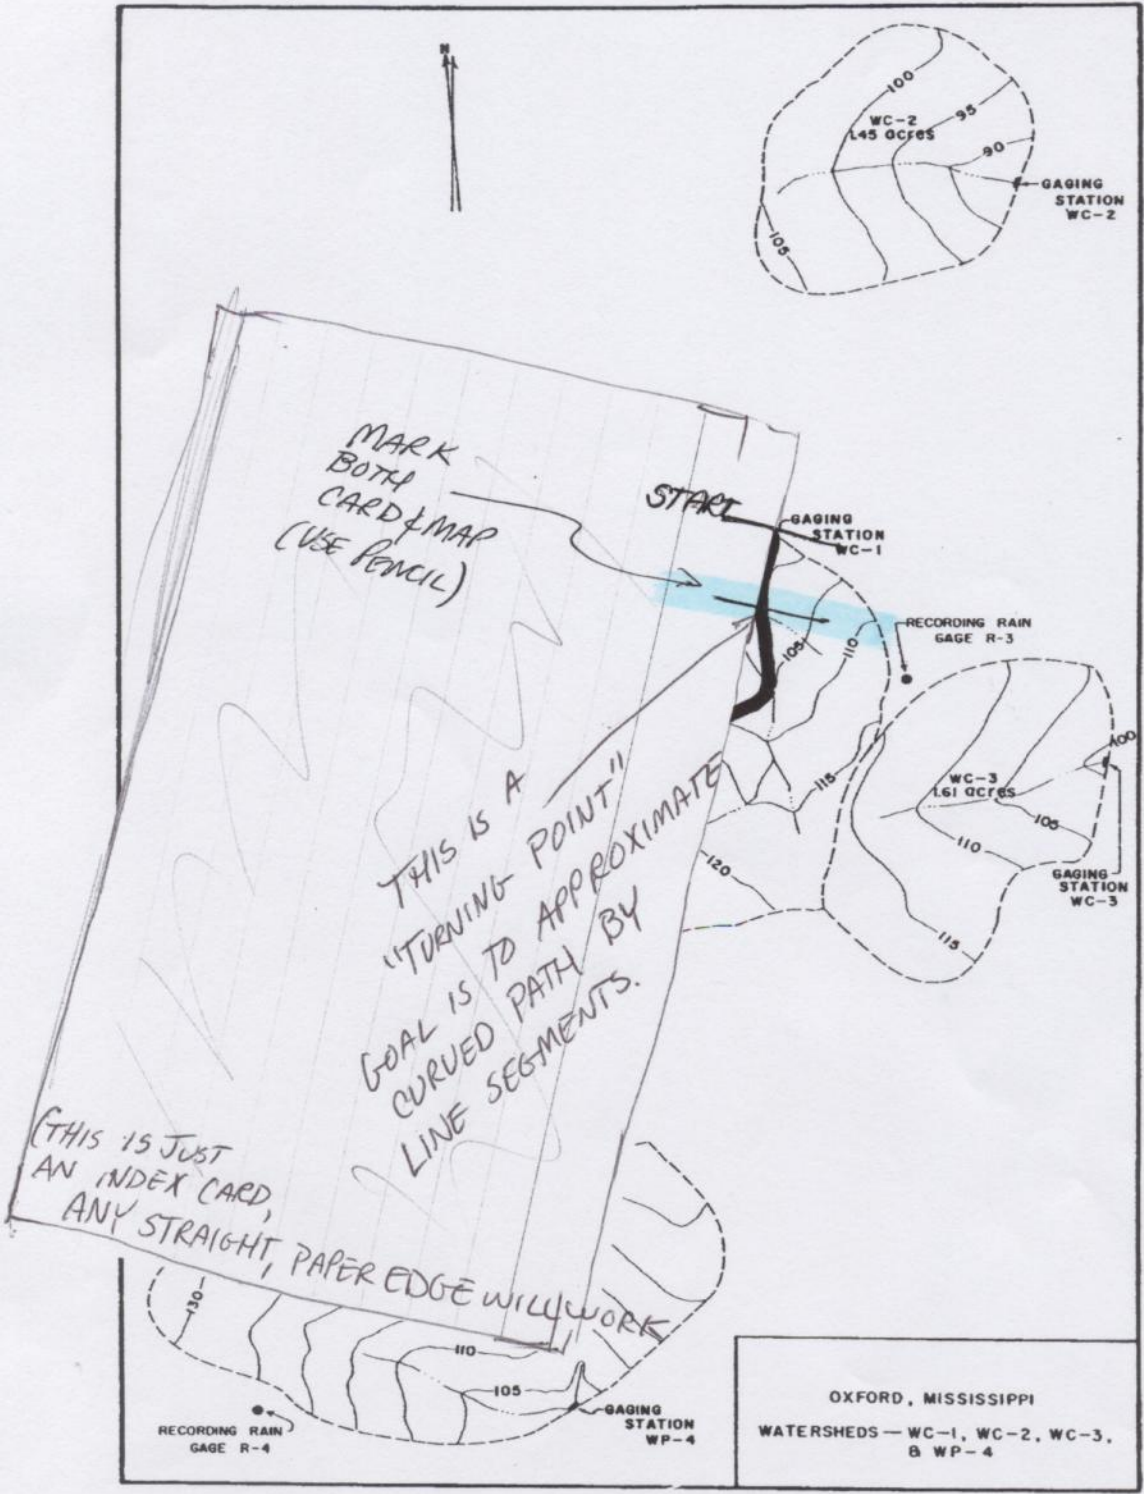 N
100
WC-2
1.45 acres
95
90
105
GAGING
STATION
WC-2
MARK
BOTH
CARD & MAP
(USE PENCIL)
START
GAGING
STATION
WC-1
105
110
RECORDING RAIN
GAGE R-3
115
120
100
WC-3
1.61 acres
105
110
115
GAGING
STATION
WC-3
THIS IS A
"TURNING POINT"
GOAL IS TO APPROXIMATE
CURVED PATH BY
LINE SEGMENTS.
(THIS IS JUST
AN INDEX CARD,
ANY STRAIGHT, PAPER EDGE WILL WORK
130
110
105
RECORDING RAIN
GAGE R-4
GAGING
STATION
WP-4
OXFORD, MISSISSIPPI
WATERSHEDS — WC-1, WC-2, WC-3,
& WP-4